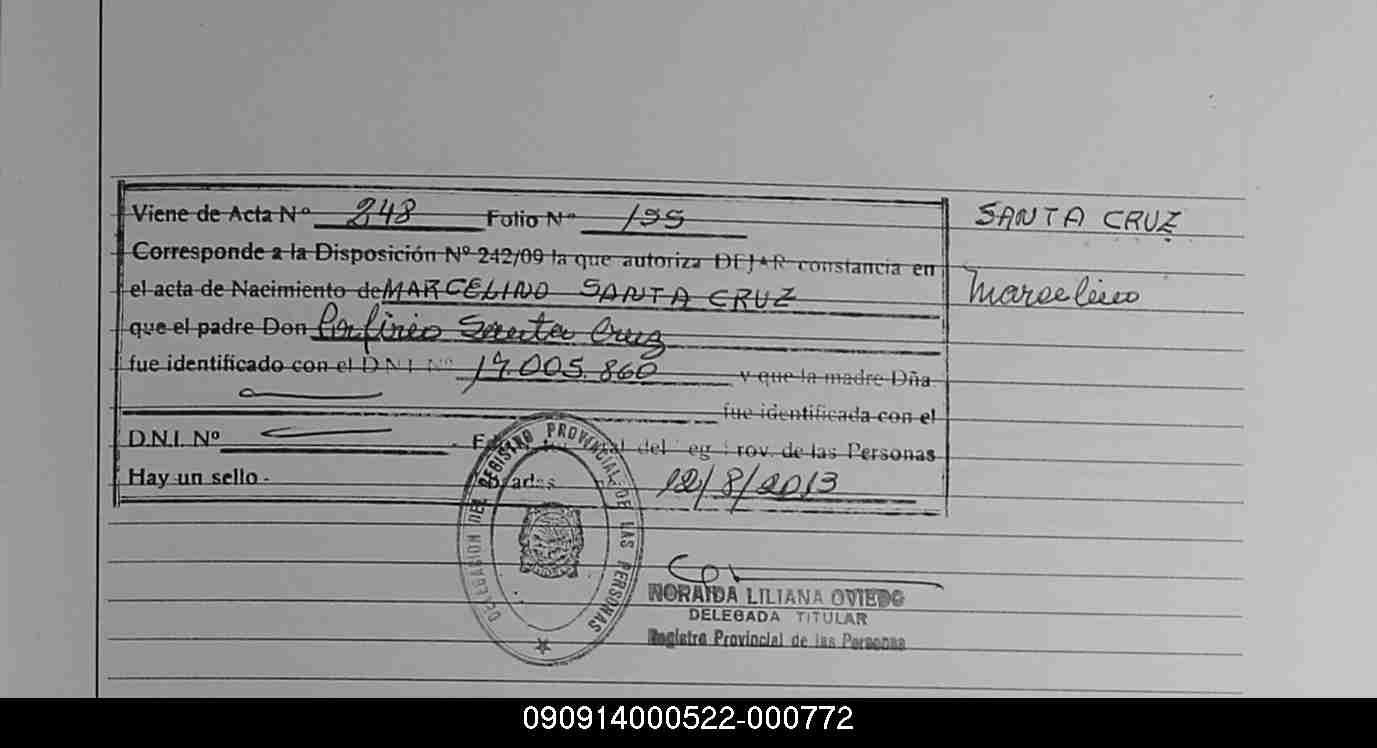 Viene de Acta Nº 248 Folio Nº 199
SANTA CRUZ
Corresponde a la Disposición Nº 242/09 la que autoriza DEJAR constancia en
el acta de Nacimiento de MARCELINO SANTA CRUZ
Marcelino
que el padre Don Porfirio Santa Cruz
fue identificado con el D N I Nº 17.005.860 y que la madre Dña
fue identificada con el
D.N.I. Nº del Reg Prov. de las Personas
Hay un sello - 12/8/2013
DELEGACION DEL REGISTRO PROVINCIAL DE LAS PERSONAS
NORAIDA LILIANA OVIEDO
DELEGADA TITULAR
Registro Provincial de las Personas
090914000522-000772